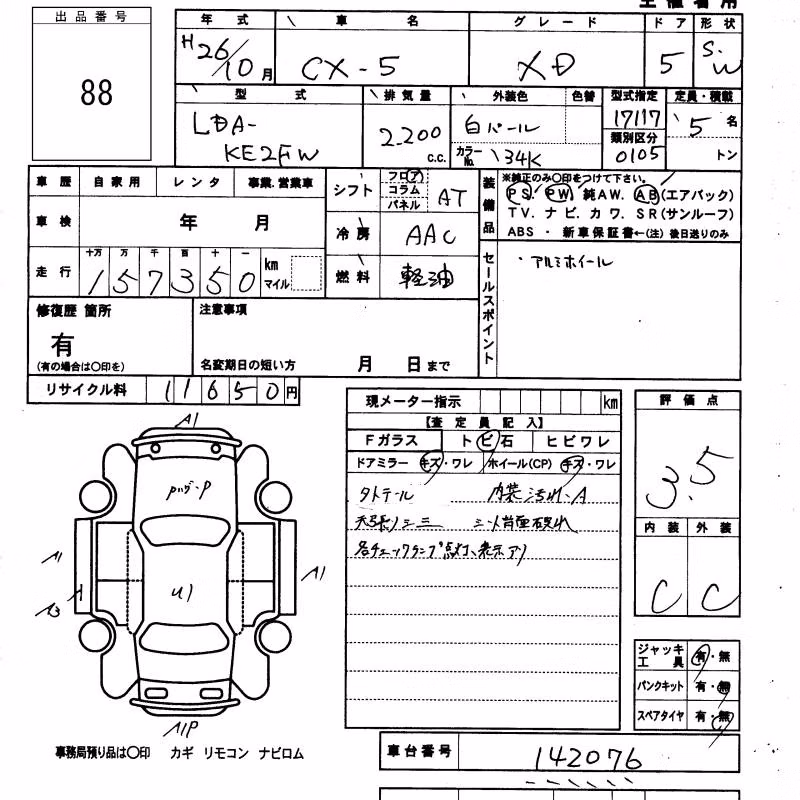 出品番号
88
年式 車名 グレード ドア 形状
H26/10月 CX-5 XD 5 S.W
型式 排気量 外装色 色替 型式指定 定員・積載
LDA-KE2FW 2200 C.C. 白パール カラーNo. 34K 17117 5名
類別区分
0105 トン
車歴 自家用 レンタ 事業.営業車
シフト フロア コラム パネル AT
装備品 ※純正のみ〇印をつけて下さい。
PS. PW. 純AW. AB(エアバック)
TV. ナビ. カワ. SR(サンルーフ)
ABS ・ 新車保証書←(注) 後日送りのみ
車検 年 月
冷房 AAC
走行 十万 万 千 百 十 一
157350 km マイル
燃料 軽油
セールスポイント
・アルミホイール
修復歴 箇所
有
(有の場合は〇印を)
注意事項
名変期日の短い方 月 日まで
リサイクル料 11650円
現メーター指示 km
【査定員記入】
Fガラス トビ石 ヒビワレ
ドアミラー キズ・ワレ ホイール(CP) キズ・ワレ
タトテール 内装汚れ、A
天張りシミ シート背面破れ
各チェックランプ点灯、表示アリ
評価点
3.5
内装 外装
C C
ジャッキ工具 有・無
パンクキット 有・無
スペアタイヤ 有・無
A1
U1
A1
A
A3
A1
A1P
事務局預り品は〇印 カギ リモコン ナビロム
車台番号 142076